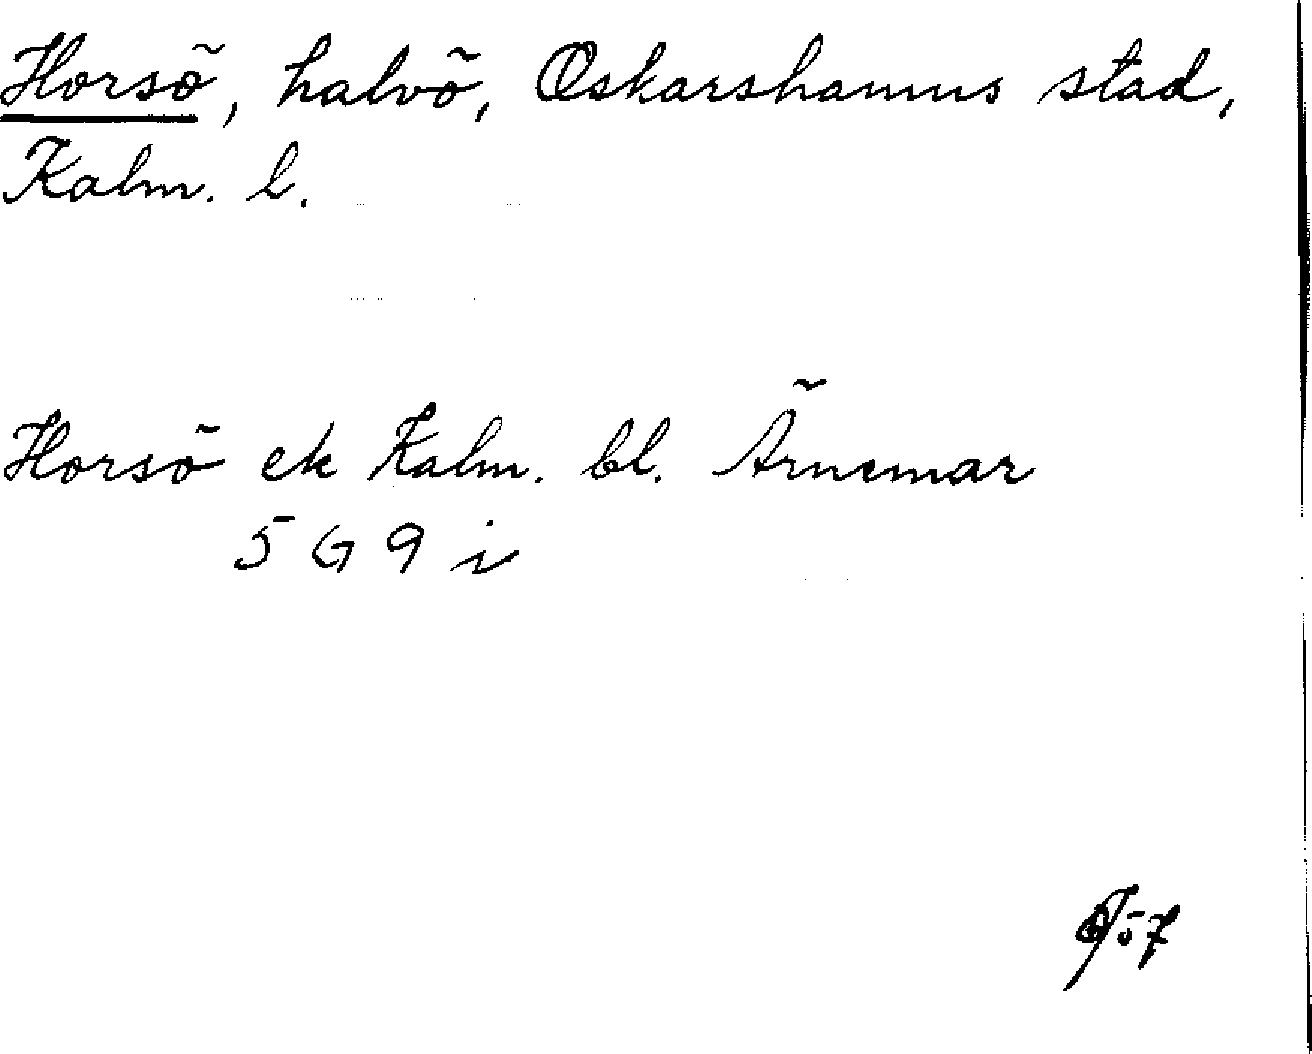 Horsö, halvö, Oskarshamns stad,
Kalm. l.
Horsö ek Kalm. bl. Ärnemar
5 G 9 i